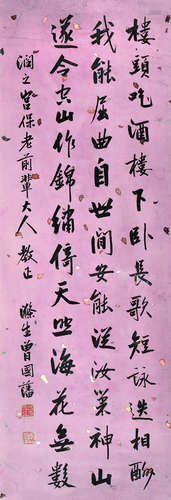 樓頭吃酒樓下卧長歌短詠迭相酬
我能屈曲自世間安能從汝巢神山
遂令空山作錦繡倚天照海花無數
潤之宮保老前輩大人教正
滌生曾國藩